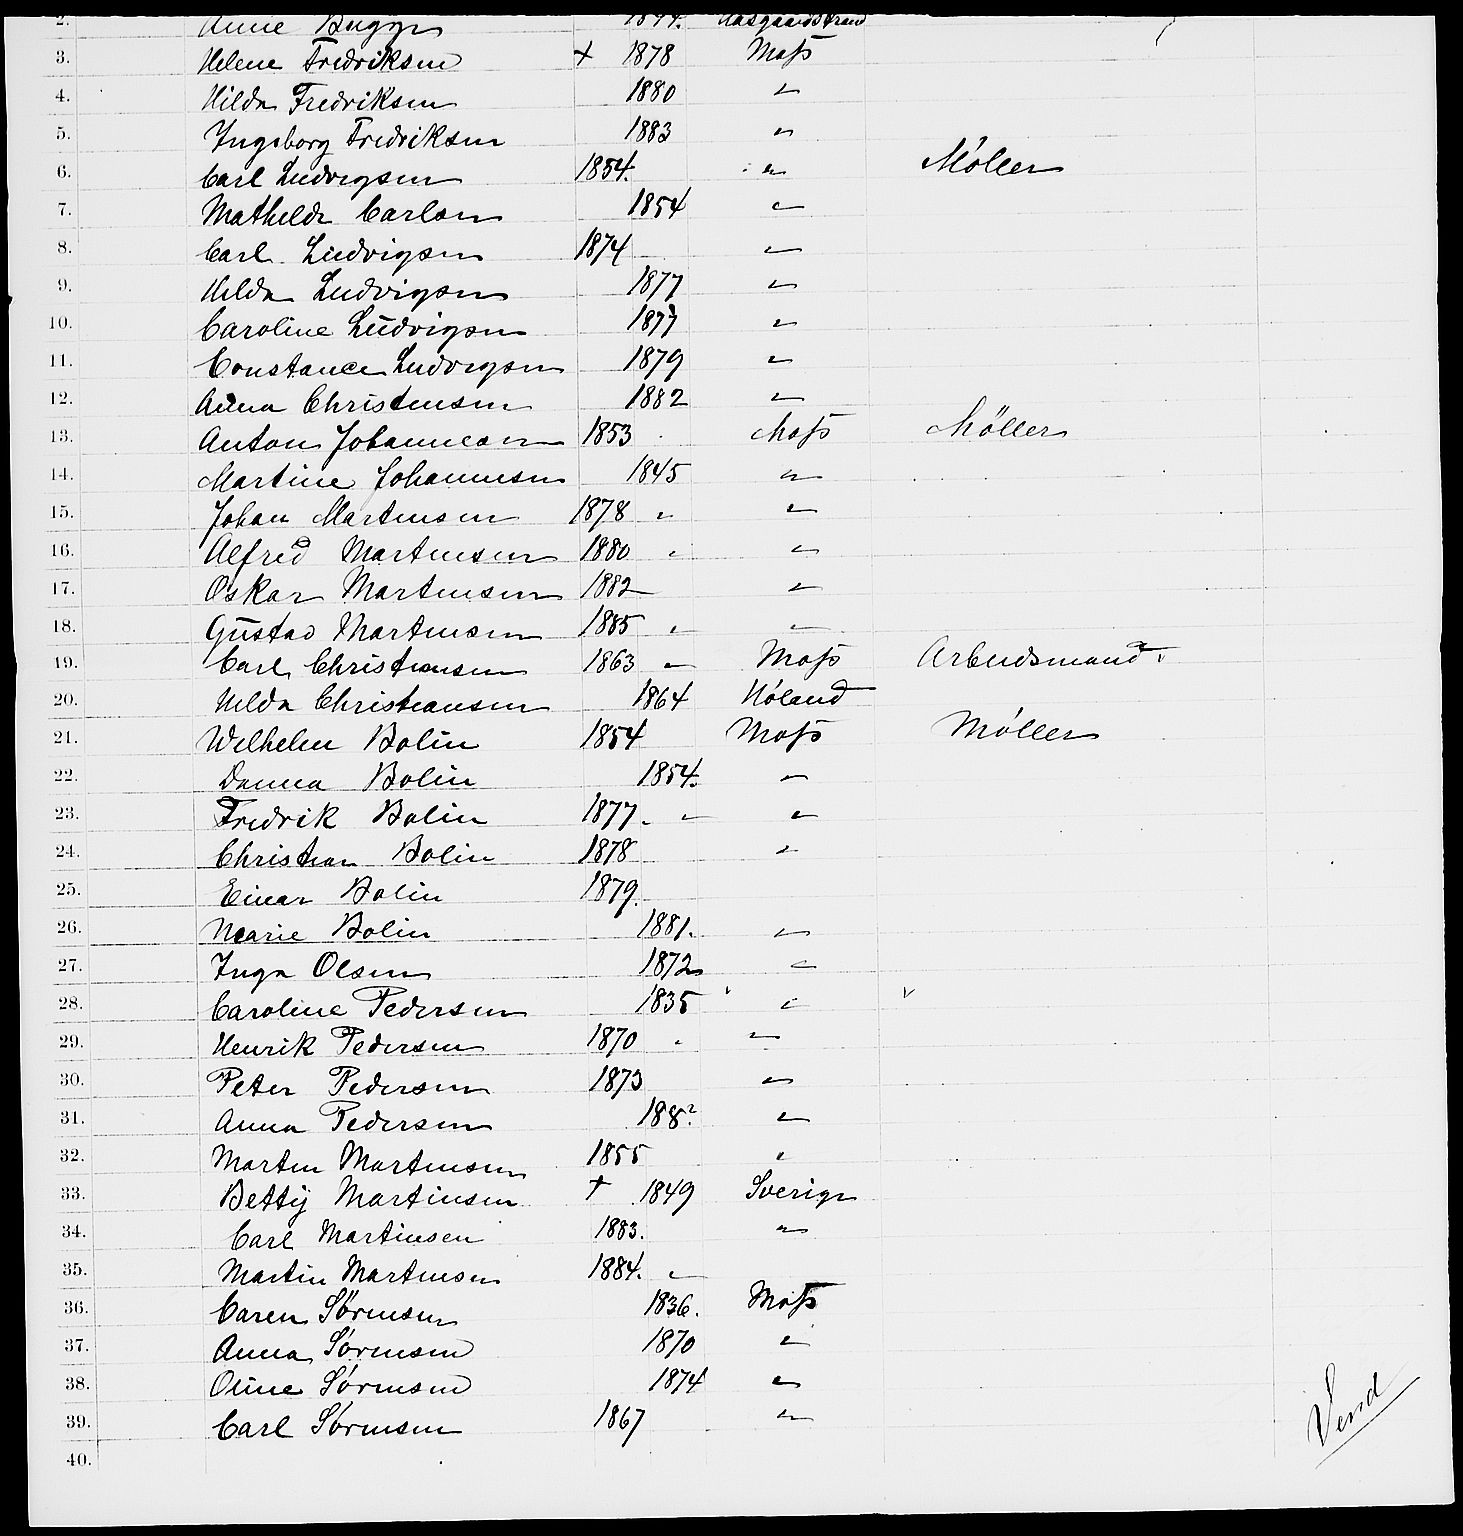 2. Anne Bugge 1844. Aasgaardstrand
3. Helene Fredriksen + 1878 Moss
4. Hilda Fredriksen 1880 "
5. Ingeborg Fredriksen 1883 "
6. Carl Ludvigsen 1854. " Møller
7. Mathilde Carlsen 1854 "
8. Carl Ludvigsen 1874 "
9. Hilda Ludvigsen 1877 "
10. Caroline Ludvigsen 1877 "
11. Constance Ludvigsen 1879 "
12. Anna Christensen 1882 "
13. Anton Johannesen 1853 Moss Møller
14. Martine Johannesen 1845 "
15. Johan Martinsen 1878 " "
16. Alfred Martinsen 1880 " "
17. Oskar Martinsen 1882 "
18. Gustav Martinsen 1885 " "
19. Carl Christiansen 1863 " Moss Arbeidsmand
20. Hilda Christiansen 1864 Høland
21. Wilhelm Bolin 1854 Moss Møller
22. Danna Bolin 1854. "
23. Fredrik Bolin 1877 " "
24. Christian Bolin 1878 "
25. Einar Bolin 1879.
26. Marie Bolin 1881. "
27. Inga Olsen 1872 "
28. Caroline Pedersen 1835 "
29. Henrik Pedersen 1870 " "
30. Peter Pedersen 1873 "
31. Anna Pedersen 188? "
32. Martin Martinsen 1855 "
33. Betty Martinsen + 1849 Sverige
34. Carl Martinsen 1883. "
35. Martin Martinsen 1884. "
36. Caren Sørensen 1836. Moss
37. Anna Sørensen 1870 "
38. Oline Sørensen 1874 "
39. Carl Sørensen 1867 "
40.
Vend